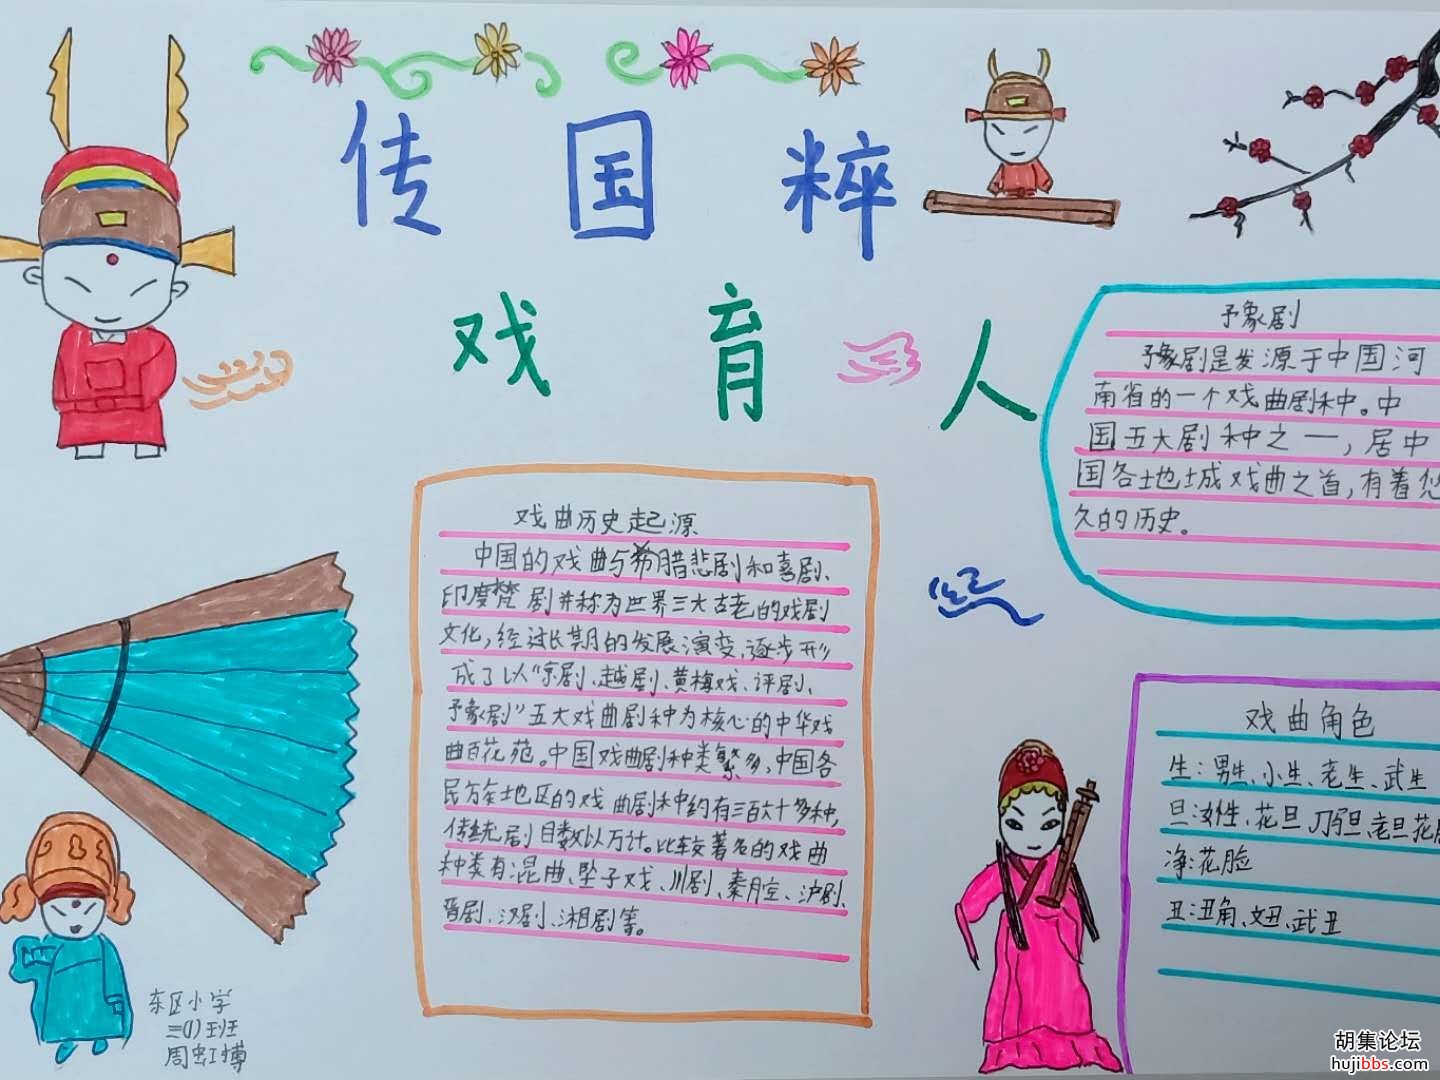 传国粹
戏育人
豫剧
豫剧是发源于中国河
南省的一个戏曲剧种。中
国五大剧种之一,居中
国各地域戏曲之首,有着悠
久的历史。
戏曲历史起源
中国的戏曲与希腊悲剧和喜剧、
印度梵剧并称为世界三大古老的戏剧
文化,经过长期的发展演变,逐步形
成了以“京剧、越剧、黄梅戏、评剧、
豫剧”五大戏曲剧种为核心的中华戏
曲百花苑。中国戏曲剧种类繁多,中国各
民族地区的戏曲剧种约有三百六十多种,
传统剧目数以万计。比较著名的戏曲
种类有:昆曲、坠子戏、川剧、秦腔、沪剧、
晋剧、汉剧、湘剧等。
戏曲角色
生:男生、小生、老生、武生
旦:女性、花旦、刀马旦、老旦花
净:花脸
丑:丑角、文丑、武丑
东区小学
三(1)班
周虹博
胡集论坛
hujibbs.com